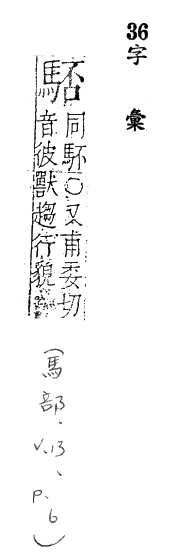 36
字彙
同駓〇又甫委切
音彼獸趨行貌
(馬部.V.13、P.6)